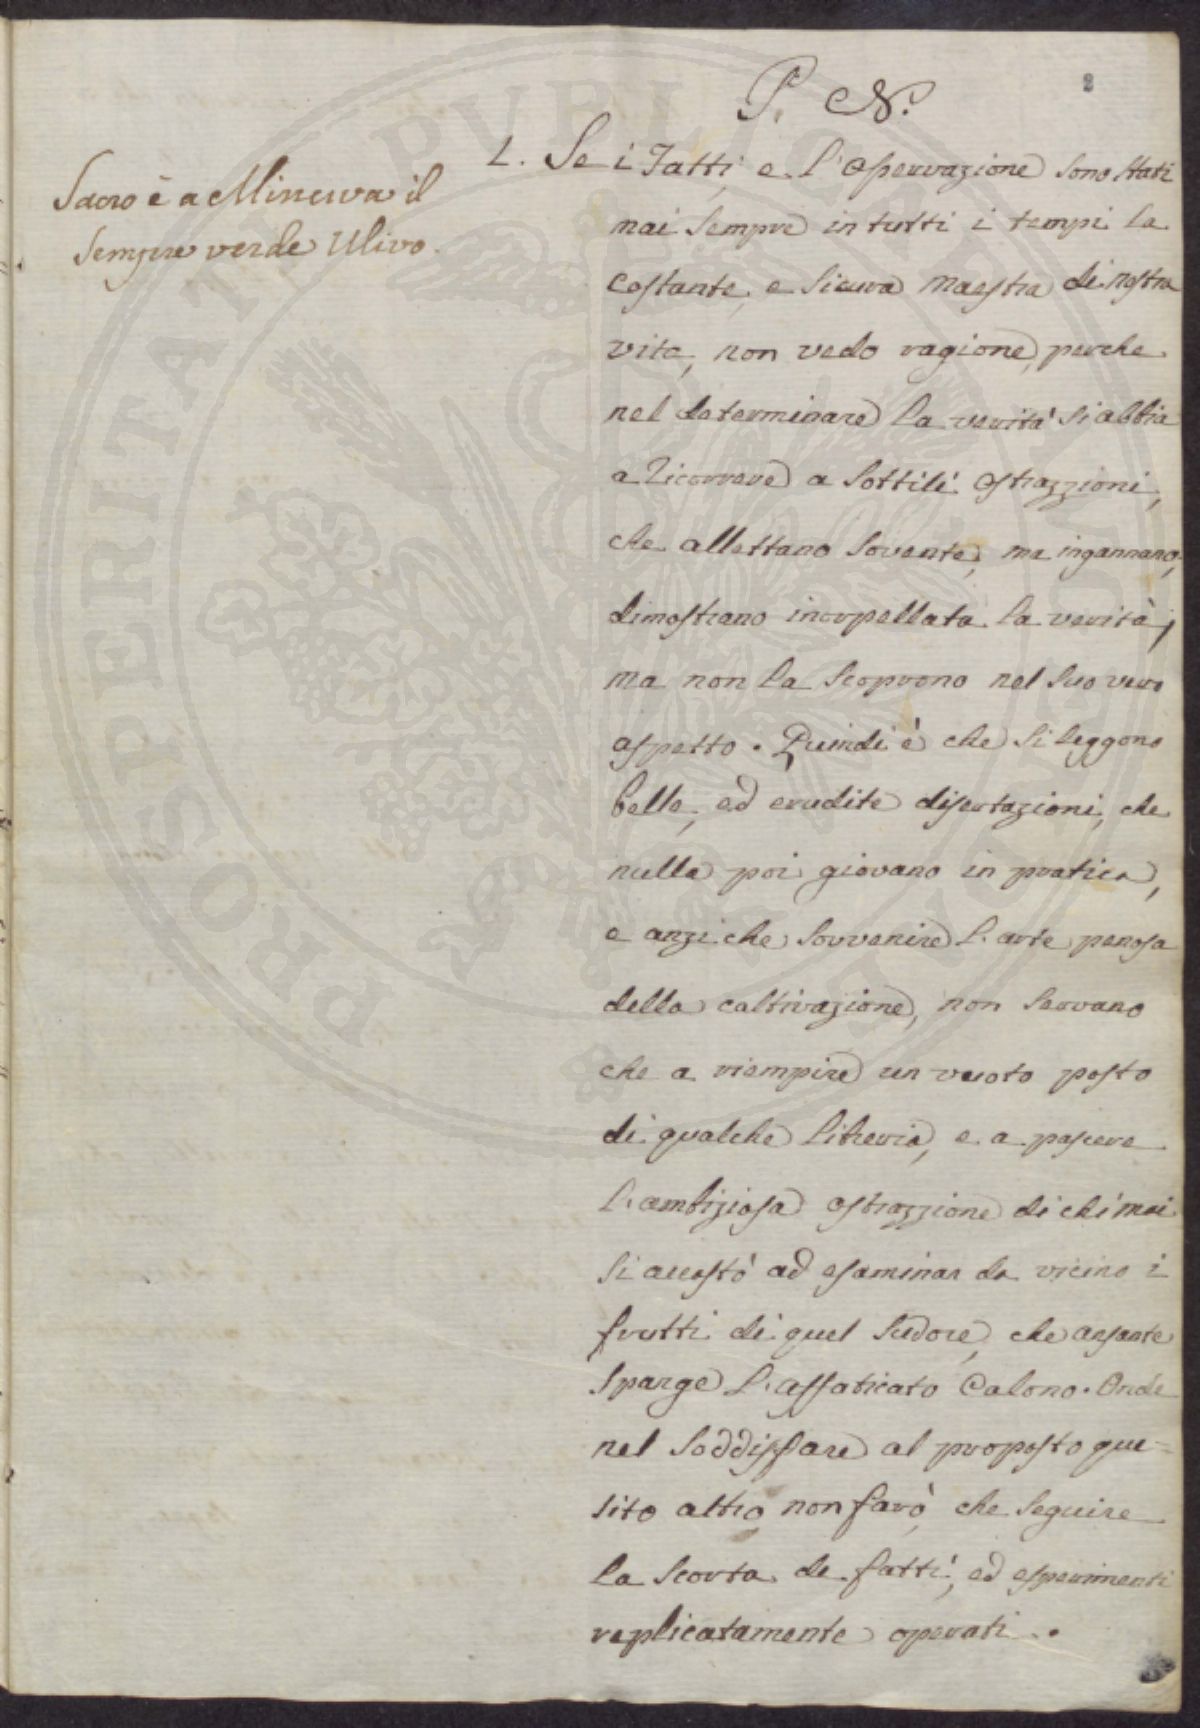 2
P. N.
Sacro è a Minerva il
sempre verde Ulivo.
1. Se i Fatti, e l'Osservazione sono stati
mai sempre in tutti i tempi la
costante, e sicura maestra di nostra
vita, non vedo ragione, perche
nel determinare la verità si abbia
a ricorrere a sottili astrazzioni,
che allettano sovente, ma ingannano,
dimostrano inorpellata la verità,
ma non la scoprono nel suo vero
aspetto. Quindi è che si leggono
belle, ed erudite disertazioni, che
nulla poi giovano in pratica,
e anzi che sovvenire l'arte penosa
della coltivazione, non servano
che a riempire un vuoto posto
di qualche libreria, e a pascere
l'ambiziosa astrazzione di chi mai
si accostò ad esaminar da vicino i
frutti di quel sudore, che ansante
sparge l'affaticato Colono. Onde
nel soddisfare al proposto que=
sito altro non farò, che seguire
la scorta de fatti, ed esperimenti
replicatamente operati.
PROSPERITATI PVBLICAE